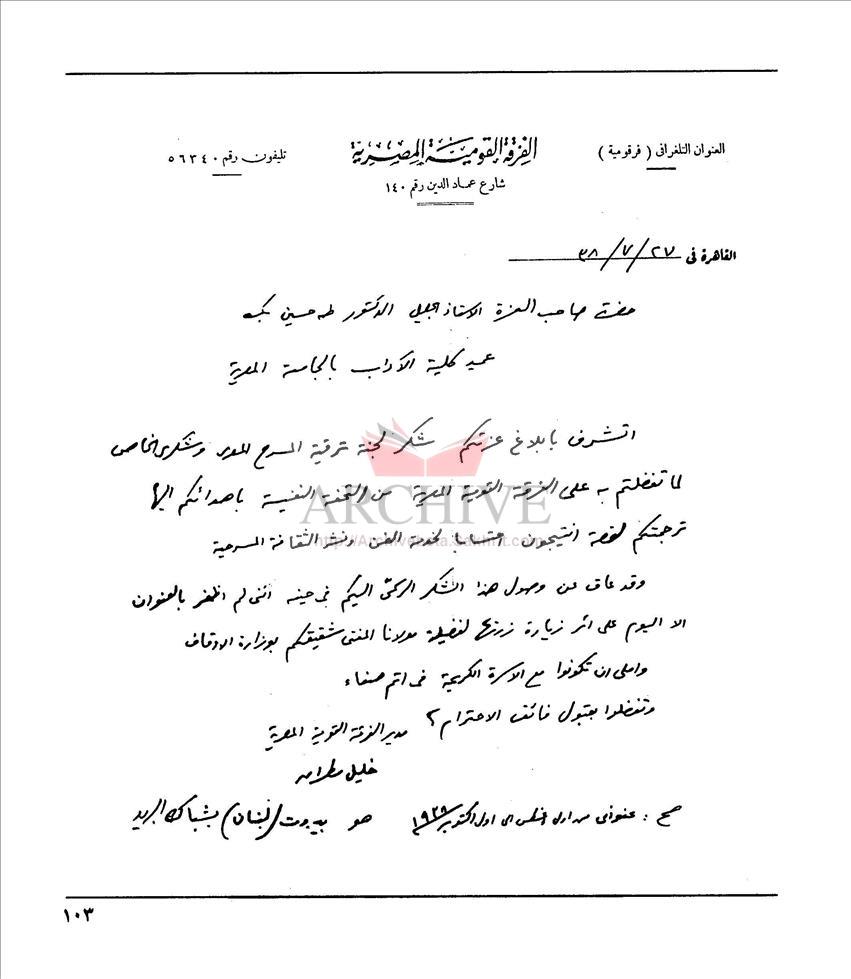 العنوان التلغرافى ( فرقومية )
الفرقة القومية المصرية
تليفون رقم ٥٦٣٤٠
شارع عماد الدين رقم ١٤٠
القاهرة فى ٢٧/٧/٣٨
حضرة صاحب العزة الاستاذ الجليل الدكتور طه حسين بك
عميد كلية الآداب بالجامعة المصرية
اتشرف بابلاغ عزتكم شكر لجنة ترقية المسرح المصرى وشكرى الخاص
لما تفضلتم به على الفرقة القومية المصرية من التحفة النفيسة باهدائكم اليها
ترجمتكم لقصة انتيجون احتسابا لخدمة الفن ونشر الثقافة المسرحية
وقد عاق عن وصول هذا الشكر الرسمى اليكم فى حينه اننى لم اظفر بالعنوان
الا اليوم على اثر زيارة زرتها لفضيلة مولانا المفتى شقيقكم بوزارة الاوقاف
واملى ان تكونوا مع الاسرة الكريمة فى اتم صفاء
وتفضلوا بقبول فائق الاحترام
مدير الفرقة القومية المصرية
خليل مطران
صح : عنوانى من اول اغسطس الى اول اكتوبر ١٩٣٨ هو بيروت (لبنان) بشباك البريد
ARCHIVE
http://Archivebeta.Sakhrit.com
١٠٣